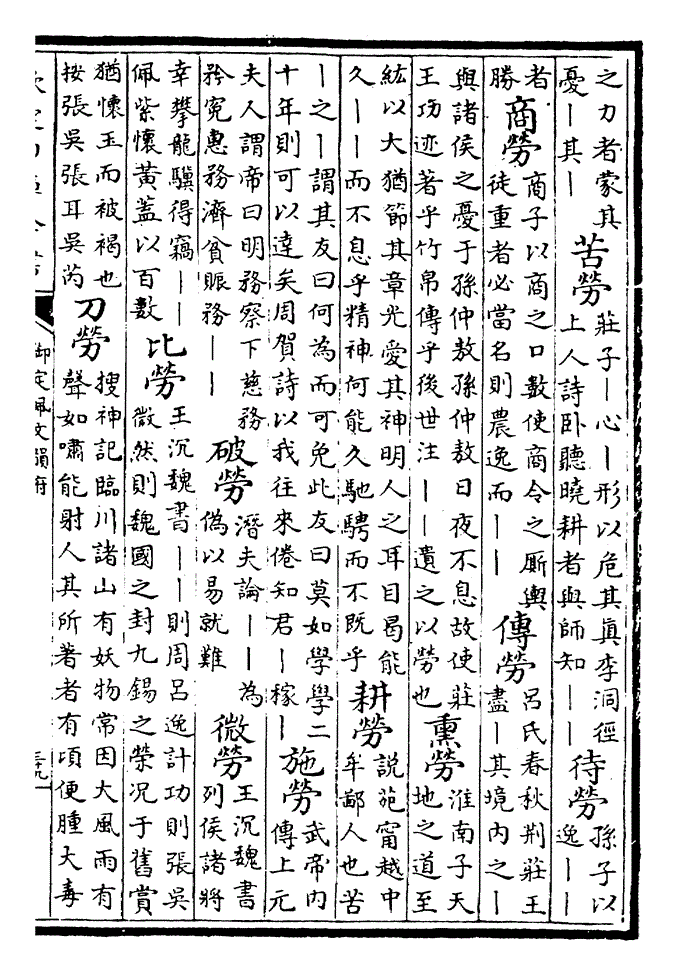 之力者蒙其憂｜其｜ 苦勞 莊子｜心｜形以危其真李洞徑上人詩卧聽曉耕者與師知｜｜ 待勞 孫子以逸｜｜
者勝 商勞 商子以商之口數使商令之厮輿徒重者必當名則農逸而｜｜ 傳勞 呂氏春秋荆莊王盡｜其境内之｜
與諸侯之憂于孫仲敖孫仲敖日夜不息故使莊王功迹著乎竹帛傳乎後世注｜｜遺之以勞也 熏勞 淮南子天地之道至
紘以大猶節其章光愛其神明人之耳目曷能久｜｜而不息乎精神何能久馳騁而不既乎 耕勞 說苑甯越中牟鄙人也苦
｜之｜謂其友曰何為而可免此友曰莫如學學二十年則可以達矣周賀詩以我往來倦知君｜稼｜ 施勞 武帝内傳上元
夫人謂帝曰明務察下慈務矜寃惠務濟貧賑務｜｜ 破勞 潛夫論｜｜為偽以易就難 微勞 王沉魏書列侯諸將
幸攀龍驥得竊｜｜佩紫懷黄蓋以百數 比勞 王沉魏書｜｜則周呂逸計功則張吳微然則魏國之封九錫之榮况于舊賞
猶懷玉而被褐也按張吳張耳吳芮 刀勞 搜神記臨川諸山有妖物常因大風雨有聲如嘯能射人其所著者有頃便腫大毒
御定佩文韻府